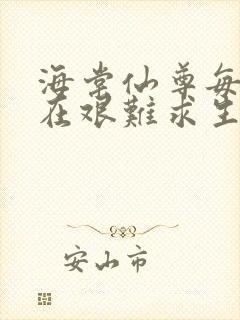 海棠仙尊每
在艰難求生
安山市